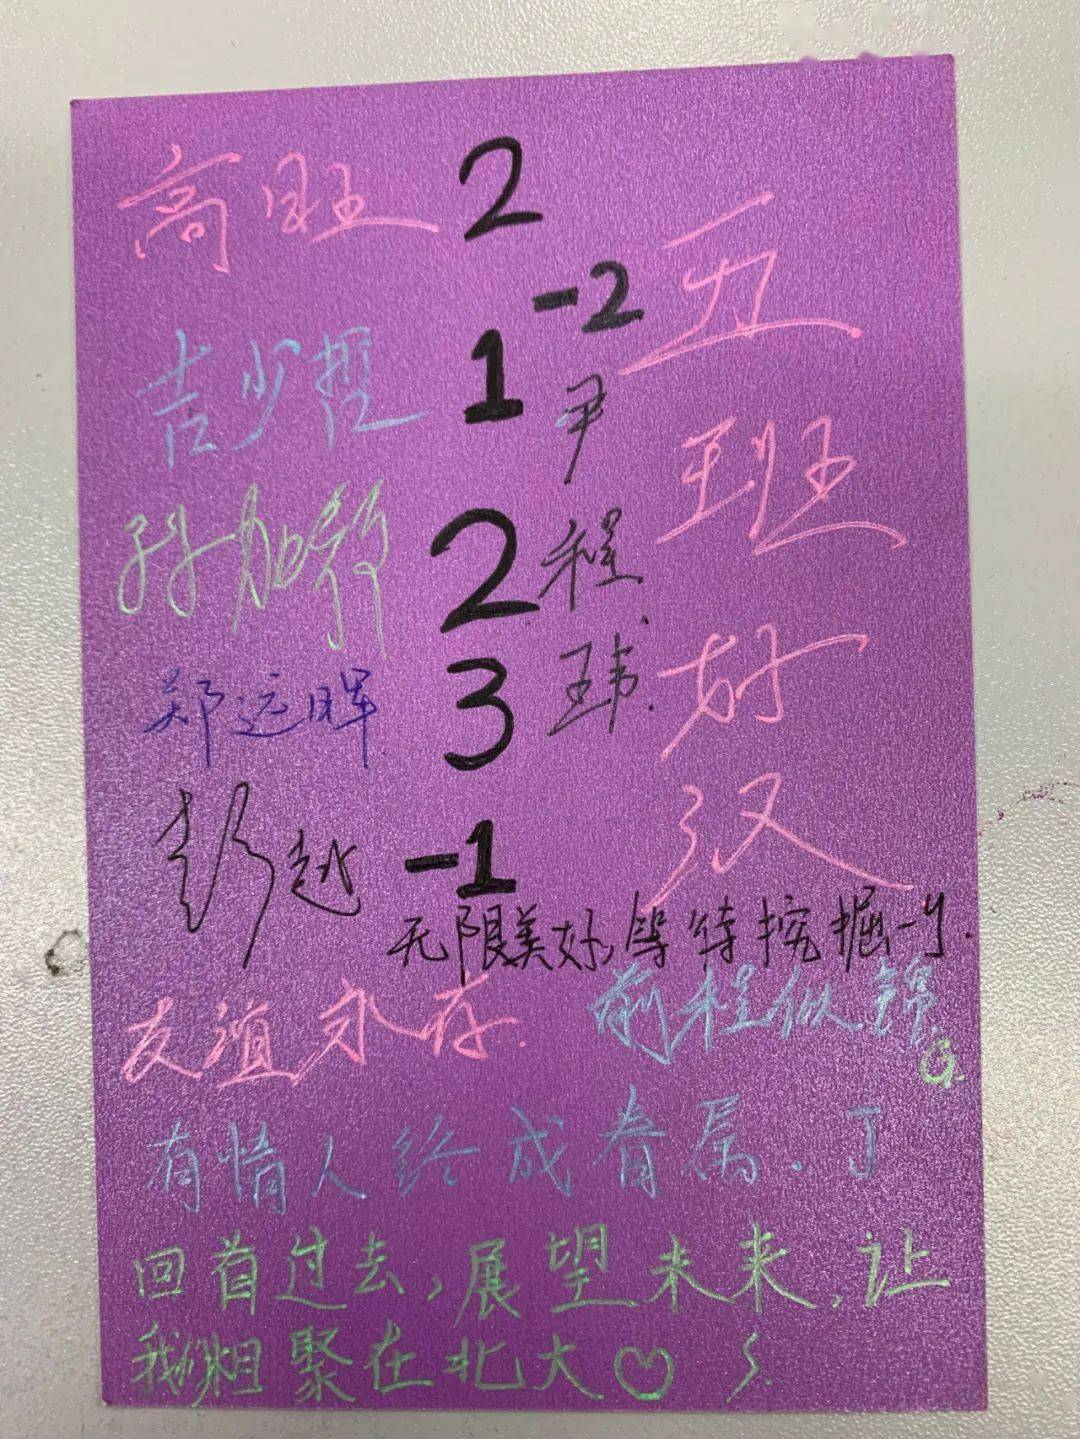 高旺 2
-2
吉少框 1
孙旭静 2
郑远晖 3
彭越 -1
尹程玮
五班好汉
无限美好,等待挖掘-y.
友谊永存.
前程似锦.
G.
有情人终成眷属.丁
回首过去,展望未来,让
我们相聚在北大♡ S.